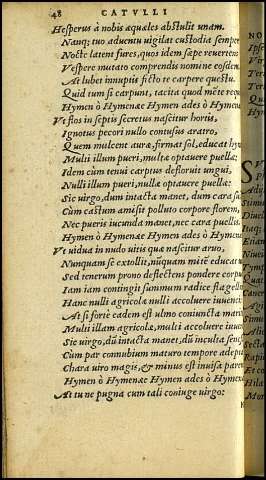 48 CATVLLI
Hesperus à nobis æquales abstulit unam.
Nanq; tuo aduentu uigilat custodia semper
Nocte latent fures, quos idem sæpe reuertens
Vespere mutato comprendis nomine eosdem
At lubet innuptis ficto te carpere questu.
Quid tum si carpunt, tacita quod mēte requ
Hymen ô Hymenæe Hymen ades ô Hymen
Vt flos in septis secretus nascitur hortis,
Ignotus pecori nullo contusus aratro,
Quem mulcent auræ, firmat sol, educat hym
Multi illum pueri, multæ optauere puellæ:
Idem cum tenui carptus defloruit ungui,
Nulli illum pueri, nullæ optauere puellæ:
Sic uirgo, dum intacta manet, dum cara su
Cùm castum amisit polluto corpore florem,
Nec pueris iucunda manet, nec cara puellis.
Hymen ô Hymenæe Hymen ades ô Hymen
Vt uidua in nudo uitis quæ nascitur aruo,
Nunquam se extollit, nūquam mitē educat u
Sed tenerum prono deflectens pondere corpu
Iam iam contingit summum radice flagello
Hanc nulli agricolæ nulli accoluere iuuenci
At si fortè eadem est ulmo coniuncta mari
Multi illam agricolæ, multi accoluere iuue
Sic uirgo, dū intacta manet, dū inculta sen
Cùm par connubium maturo tempore adep
Chara uiro magis, & minus est inuisa paren
Hymen ô Hymenæe Hymen ades ô Hymen
At tu ne pugna cum tali coniuge uirgo: